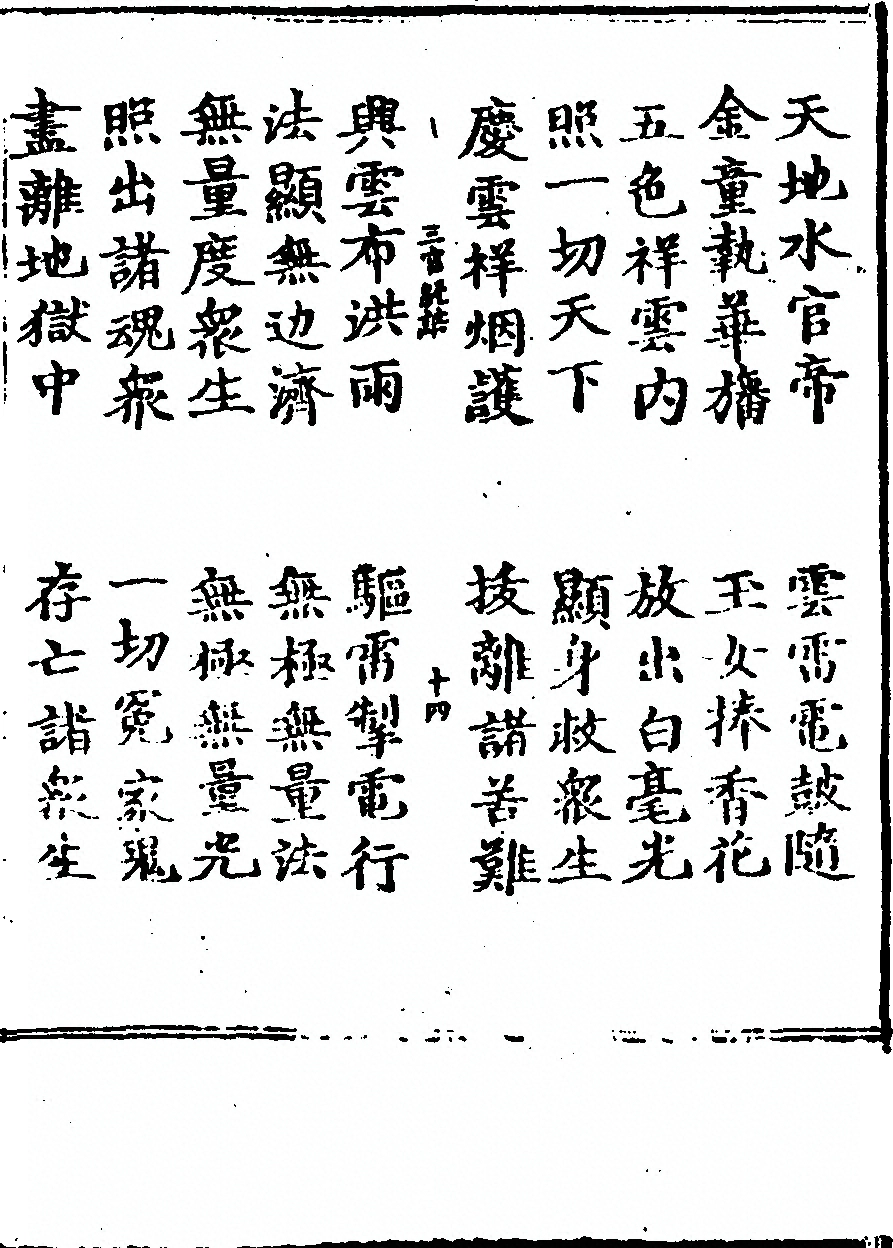 天地水官帝　雲雷電鼓隨
金童執華旛　玉女捧香花
五色祥雲內　放出白毫光
照一切天下　顯身救眾生
慶雲祥烟護　拔離諸苦難
三官經　十四
興雲布洪雨　驅雷掣電行
法顯無边濟　無極無量法
無量度眾生　無極無量光
照出諸魂眾　一切冤家鬼
盡離地獄中　存亡諸眾生